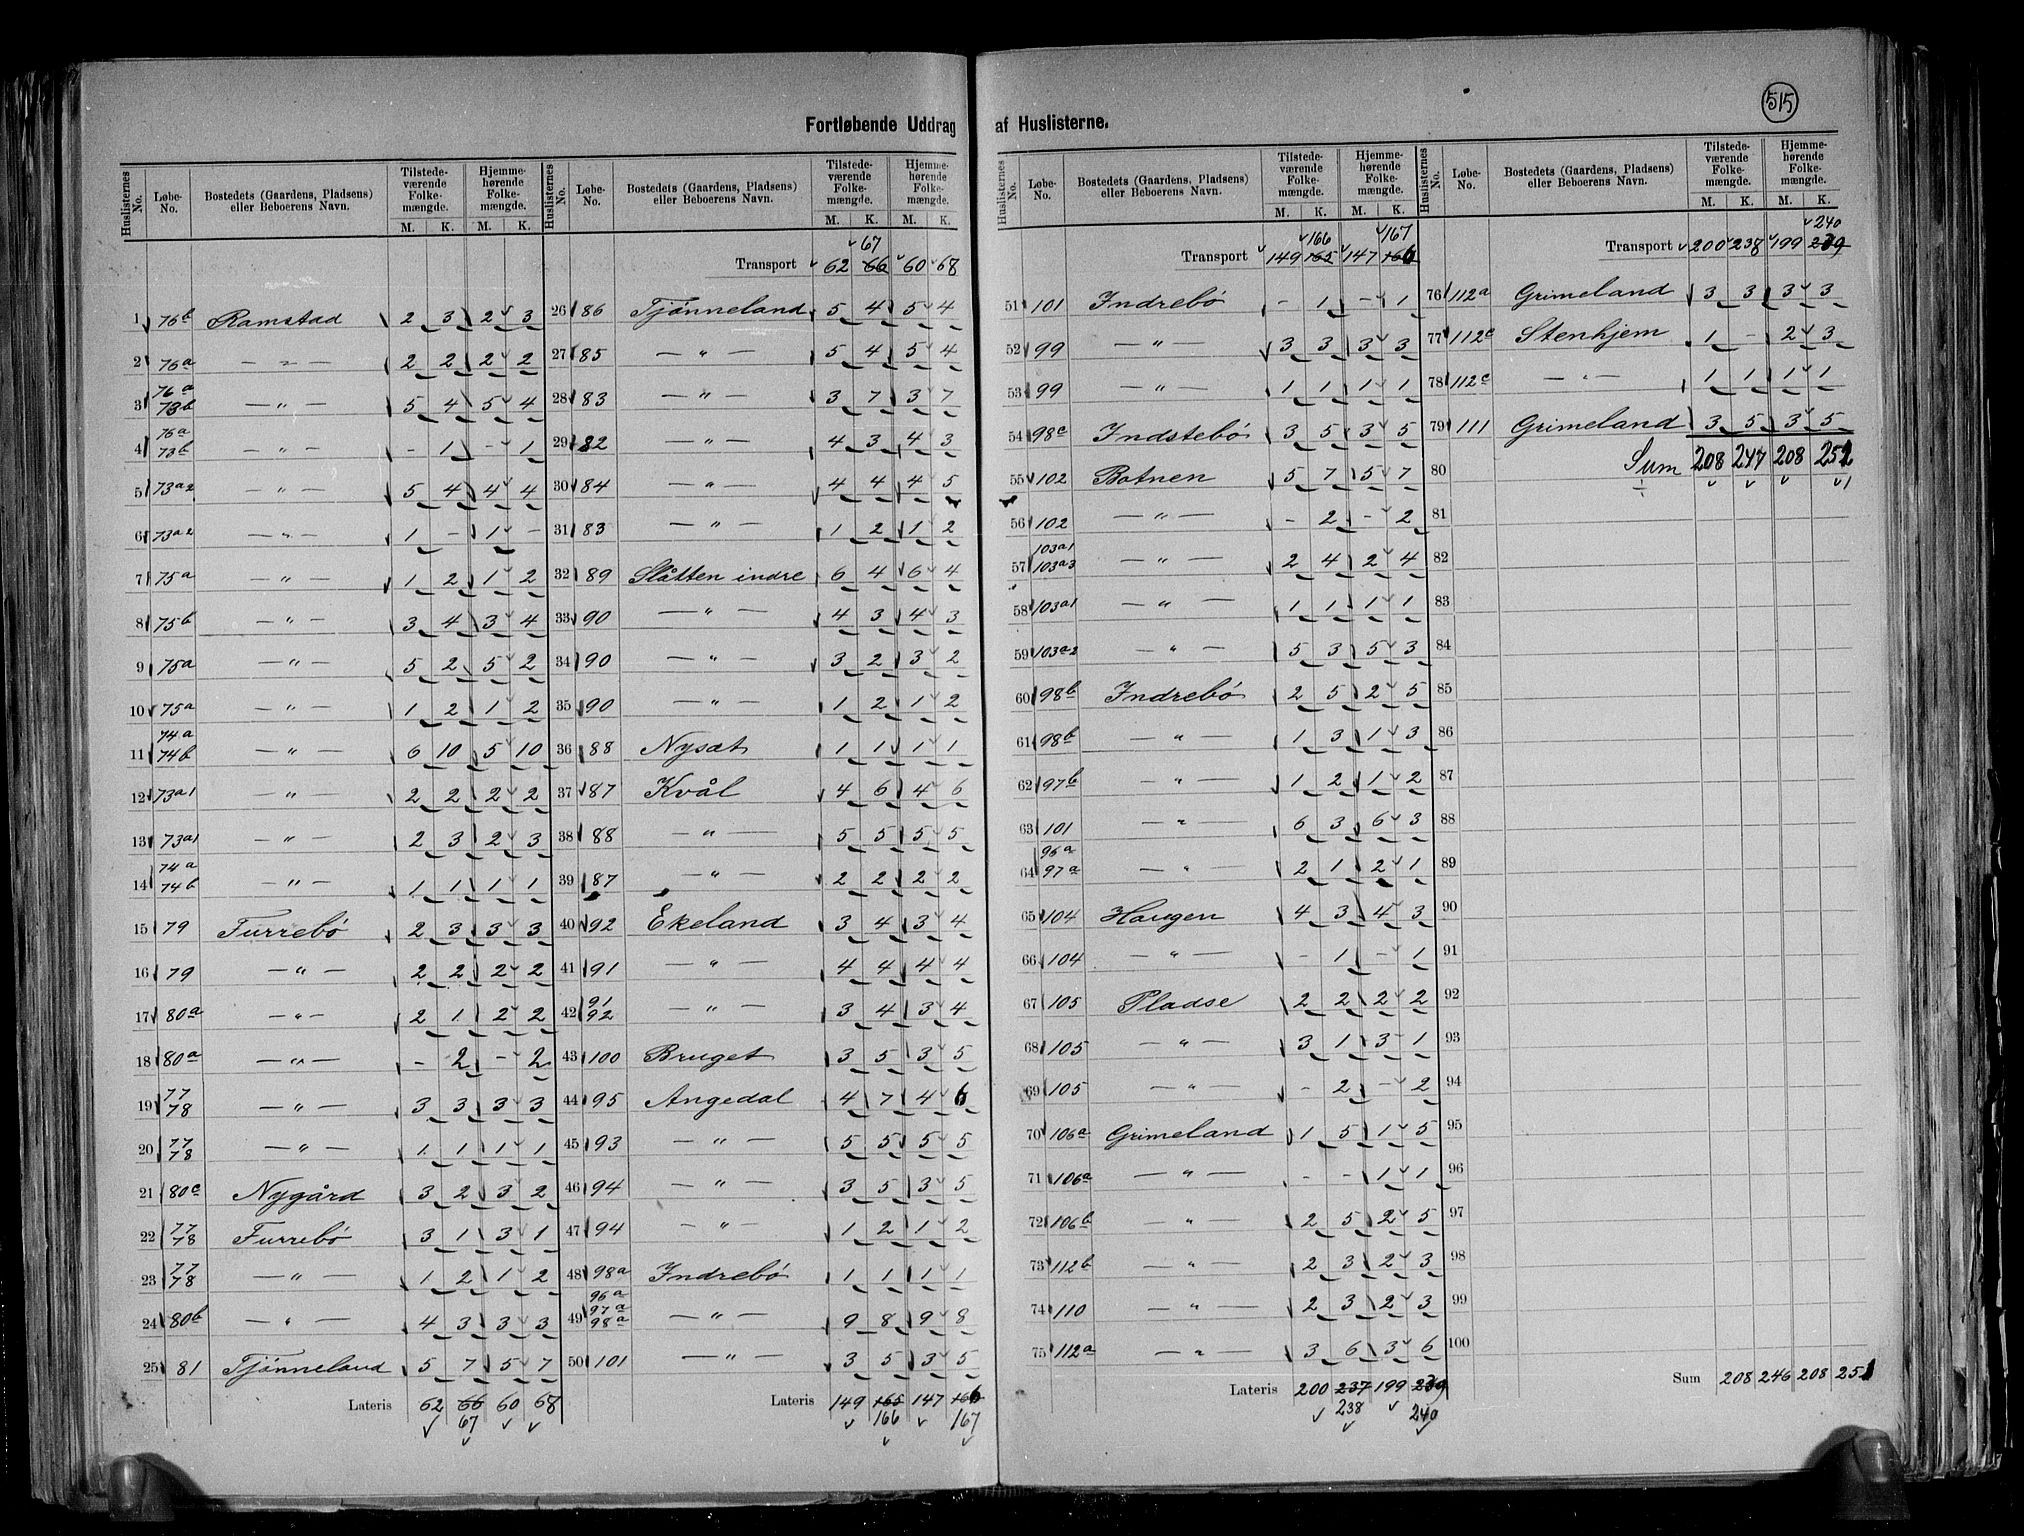 515
Fortløbende Uddrag af Huslisterne.
Huslisternes No. | Løbe-No. | Bostedets (Gaardens, Pladsens) eller Beboerens Navn. | Tilstedeværende Folkemængde. M. K. | Hjemmehørende Folkemængde. M. K.
1 76b Ramstad 2 3 2 3
2 76a — " — 2 2 2 2
3 76a 73b — " — 5 4 5 4
4 76a 73b — " — - 1 - 1
5 73a2 — " — 5 4 4 4
6 73a2 — " — 1 - 1 -
7 75a — " — 1 2 1 2
8 75b — " — 3 4 3 4
9 75a — " — 5 2 5 2
10 75a — " — 1 2 1 2
11 74a 74b — " — 6 10 5 10
12 73a1 — " — 2 2 2 2
13 73a1 — " — 2 3 2 3
14 74a 74b — " — 1 1 1 1
15 79 Furrebö 2 3 3 3
16 79 — " — 2 2 2 2
17 80a — " — 2 1 2 2
18 80a — " — - 2 - 2
19 77 78 — " — 3 3 3 3
20 77 78 — " — 1 1 1 1
21 80c Nygård 3 2 3 2
22 77 78 Furrebö 3 1 3 1
23 77 78 — " — 1 2 1 2
24 80b — " — 4 3 3 3
25 81 Tjønneland 5 7 5 7
Lateris 62 66 60 68
67
67
Transport 62 66 60 68
26 86 Tjønneland 5 4 5 4
27 85 — " — 5 4 5 4
28 83 — " — 3 7 3 7
29 82 — " — 4 3 4 3
30 84 — " — 4 4 4 5
31 83 — " — 1 2 1 2
32 89 Slåtten indre 6 4 6 4
33 90 — " — 4 3 4 3
34 90 — " — 3 2 3 2
35 90 — " — 1 2 1 2
36 88 Nysæt 1 1 1 1
37 87 Kvål 4 6 4 6
38 88 — " — 5 5 5 5
39 87 — " — 2 2 2 2
40 92 Ekeland 3 4 3 4
41 91 — " — 4 4 4 4
42 91 92 — " — 3 4 3 4
43 100 Bruget 3 5 3 5
44 95 Angedal 4 7 4 6
45 93 — " — 5 5 5 5
46 94 — " — 3 5 3 5
47 94 — " — 1 2 1 2
48 98a Indrebö 1 1 1 1
49 96a 97a 98a — " — 9 8 9 8
50 101 — " — 3 5 3 5
Lateris 149 165 147 166
166 167
Huslisternes No. | Løbe-No. | Bostedets (Gaardens, Pladsens) eller Beboerens Navn. | Tilstedeværende Folkemængde. M. K. | Hjemmehørende Folkemængde. M. K.
166 167
Transport 149 165 147 166
51 101 Indrebö - 1 - 1
52 99 — " — 3 3 3 3
53 99 — " — 1 1 1 1
54 98c Indstebö 3 5 3 5
55 102 Botnen 5 7 5 7
56 102 — " — - 2 - 2
57 103a1 103a3 — " — 2 4 2 4
58 103a1 — " — 1 1 1 1
59 103a2 — " — 5 3 5 3
60 98b Indrebö 2 5 2 5
61 98b — " — 1 3 1 3
62 97b — " — 1 2 1 2
63 101 — " — 6 3 6 3
64 96a 97a — " — 2 1 2 1
65 104 Haugen 4 3 4 3
66 104 — " — - 1 - 1
67 105 Pladse 2 2 2 2
68 105 — " — 3 1 3 1
69 105 — " — - 2 - 2
70 106a Grimeland 1 5 1 5
71 106a — " — - - 1 1
72 106b — " — 2 5 2 5
73 112b — " — 2 3 2 3
74 110 — " — 2 3 2 3
75 112a — " — 3 6 3 6
Lateris 200 237 199 239
238 240
240
Transport 200 238 199 239
76 112a Grimeland 3 3 3 3
77 112c Stenhjem 1 - 2 3
78 112c — " — 1 1 1 1
79 111 Grimeland 3 5 3 5
80 Sum 208 247 208 252
1
81
82
83
84
85
86
87
88
89
90
91
92
93
94
95
96
97
98
99
100
Sum 208 246 208 251